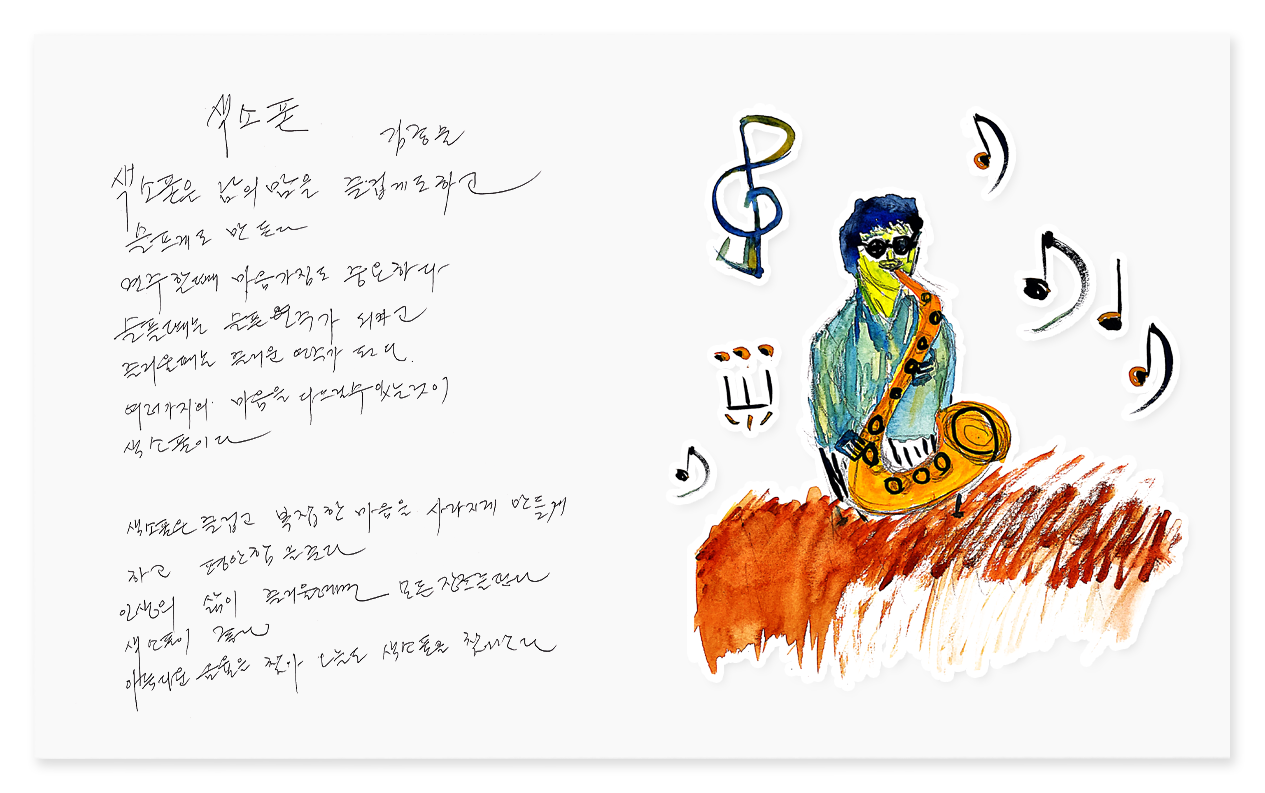 색소폰
김종문
색소폰은 남의 맘을 즐겁게도하고
슬프게도 만든다
연주할때 마음가짐도 중요하다
슬플때는 슬픈 연주가 되하고
즐거울때는 즐거운 연주가 된다.
여러가지의 마음을 다스릴수있는것이
색소폰이다
색소폰은 즐겁고 복잡한 마음을 사라지게 만들게
하고 평안함을 준다
인생의 삶이 즐거울때면 모든
색소폰이 좋다
아름다운 을 찾아 오늘도 색소폰을